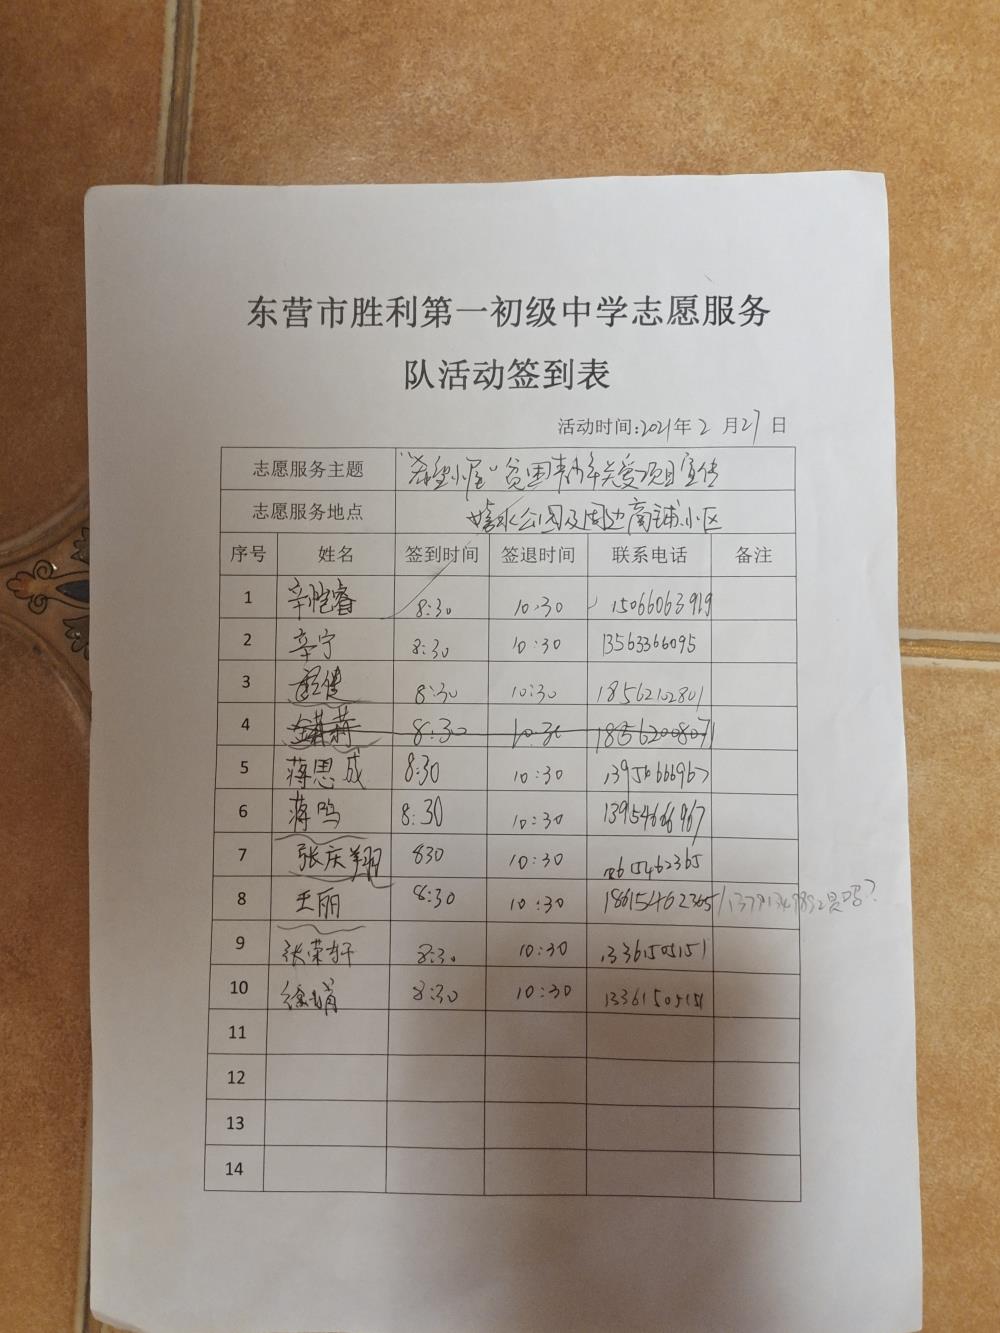 东营市胜利第一初级中学志愿服务
队活动签到表
活动时间:2021年2月27日
志愿服务主题 "希望小屋"贫困青少年关爱项目宣传
志愿服务地点 水公园及周边商铺.小区
序号 姓名 签到时间 签退时间 联系电话 备注
1 辛恺睿 8:30 10:30 15066063919
2 辛宁 8:30 10:30 13563366095
3 8:30 10:30 18562102801
4 8:30 10:30 18562008071
5 蒋思成 8:30 10:30
6 蒋鸣 8:30 10:30 13954666967
7 张庆翔 830 10:30
8 王丽 8:30 10:30 18615462365 是吗?
9 张荣轩 8:30 10:30 13361505151
10 徐娟 8:30 10:30 13361505151
11
12
13
14